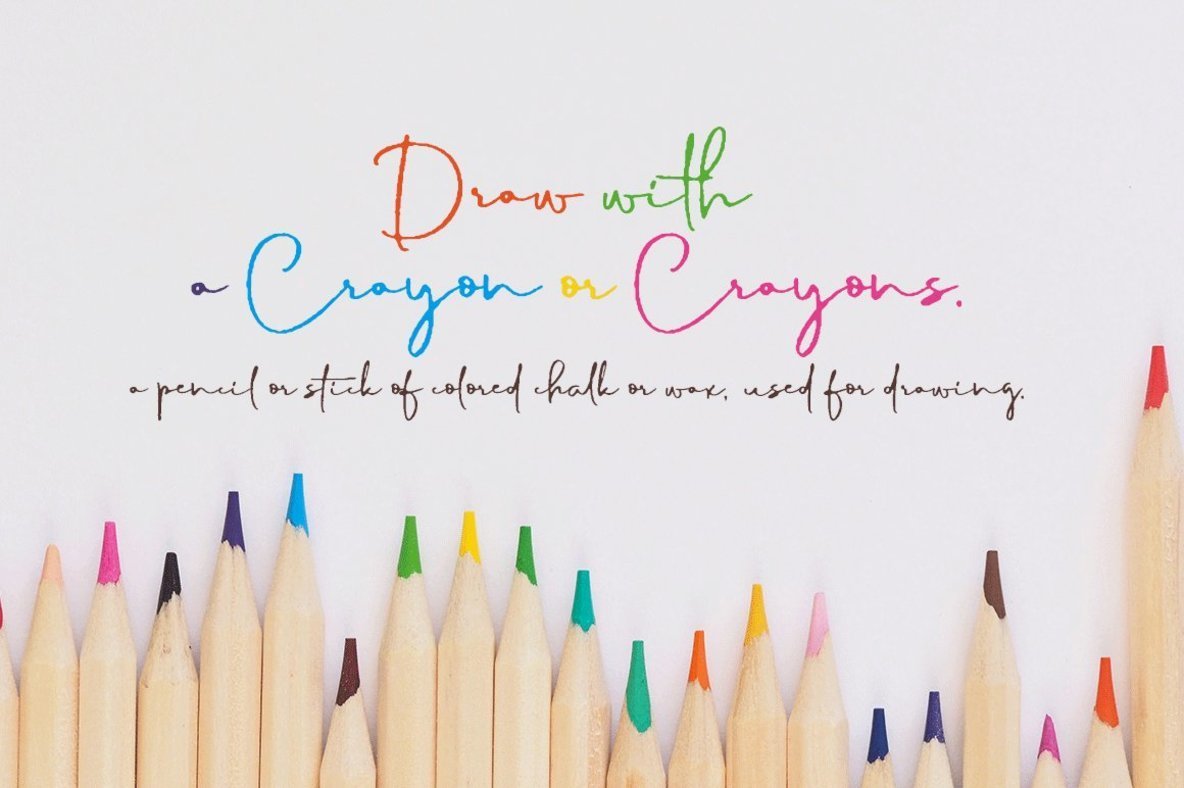 Draw with
a Crayon or Crayons.
a pencil or stick of colored chalk or wax, used for drawing.